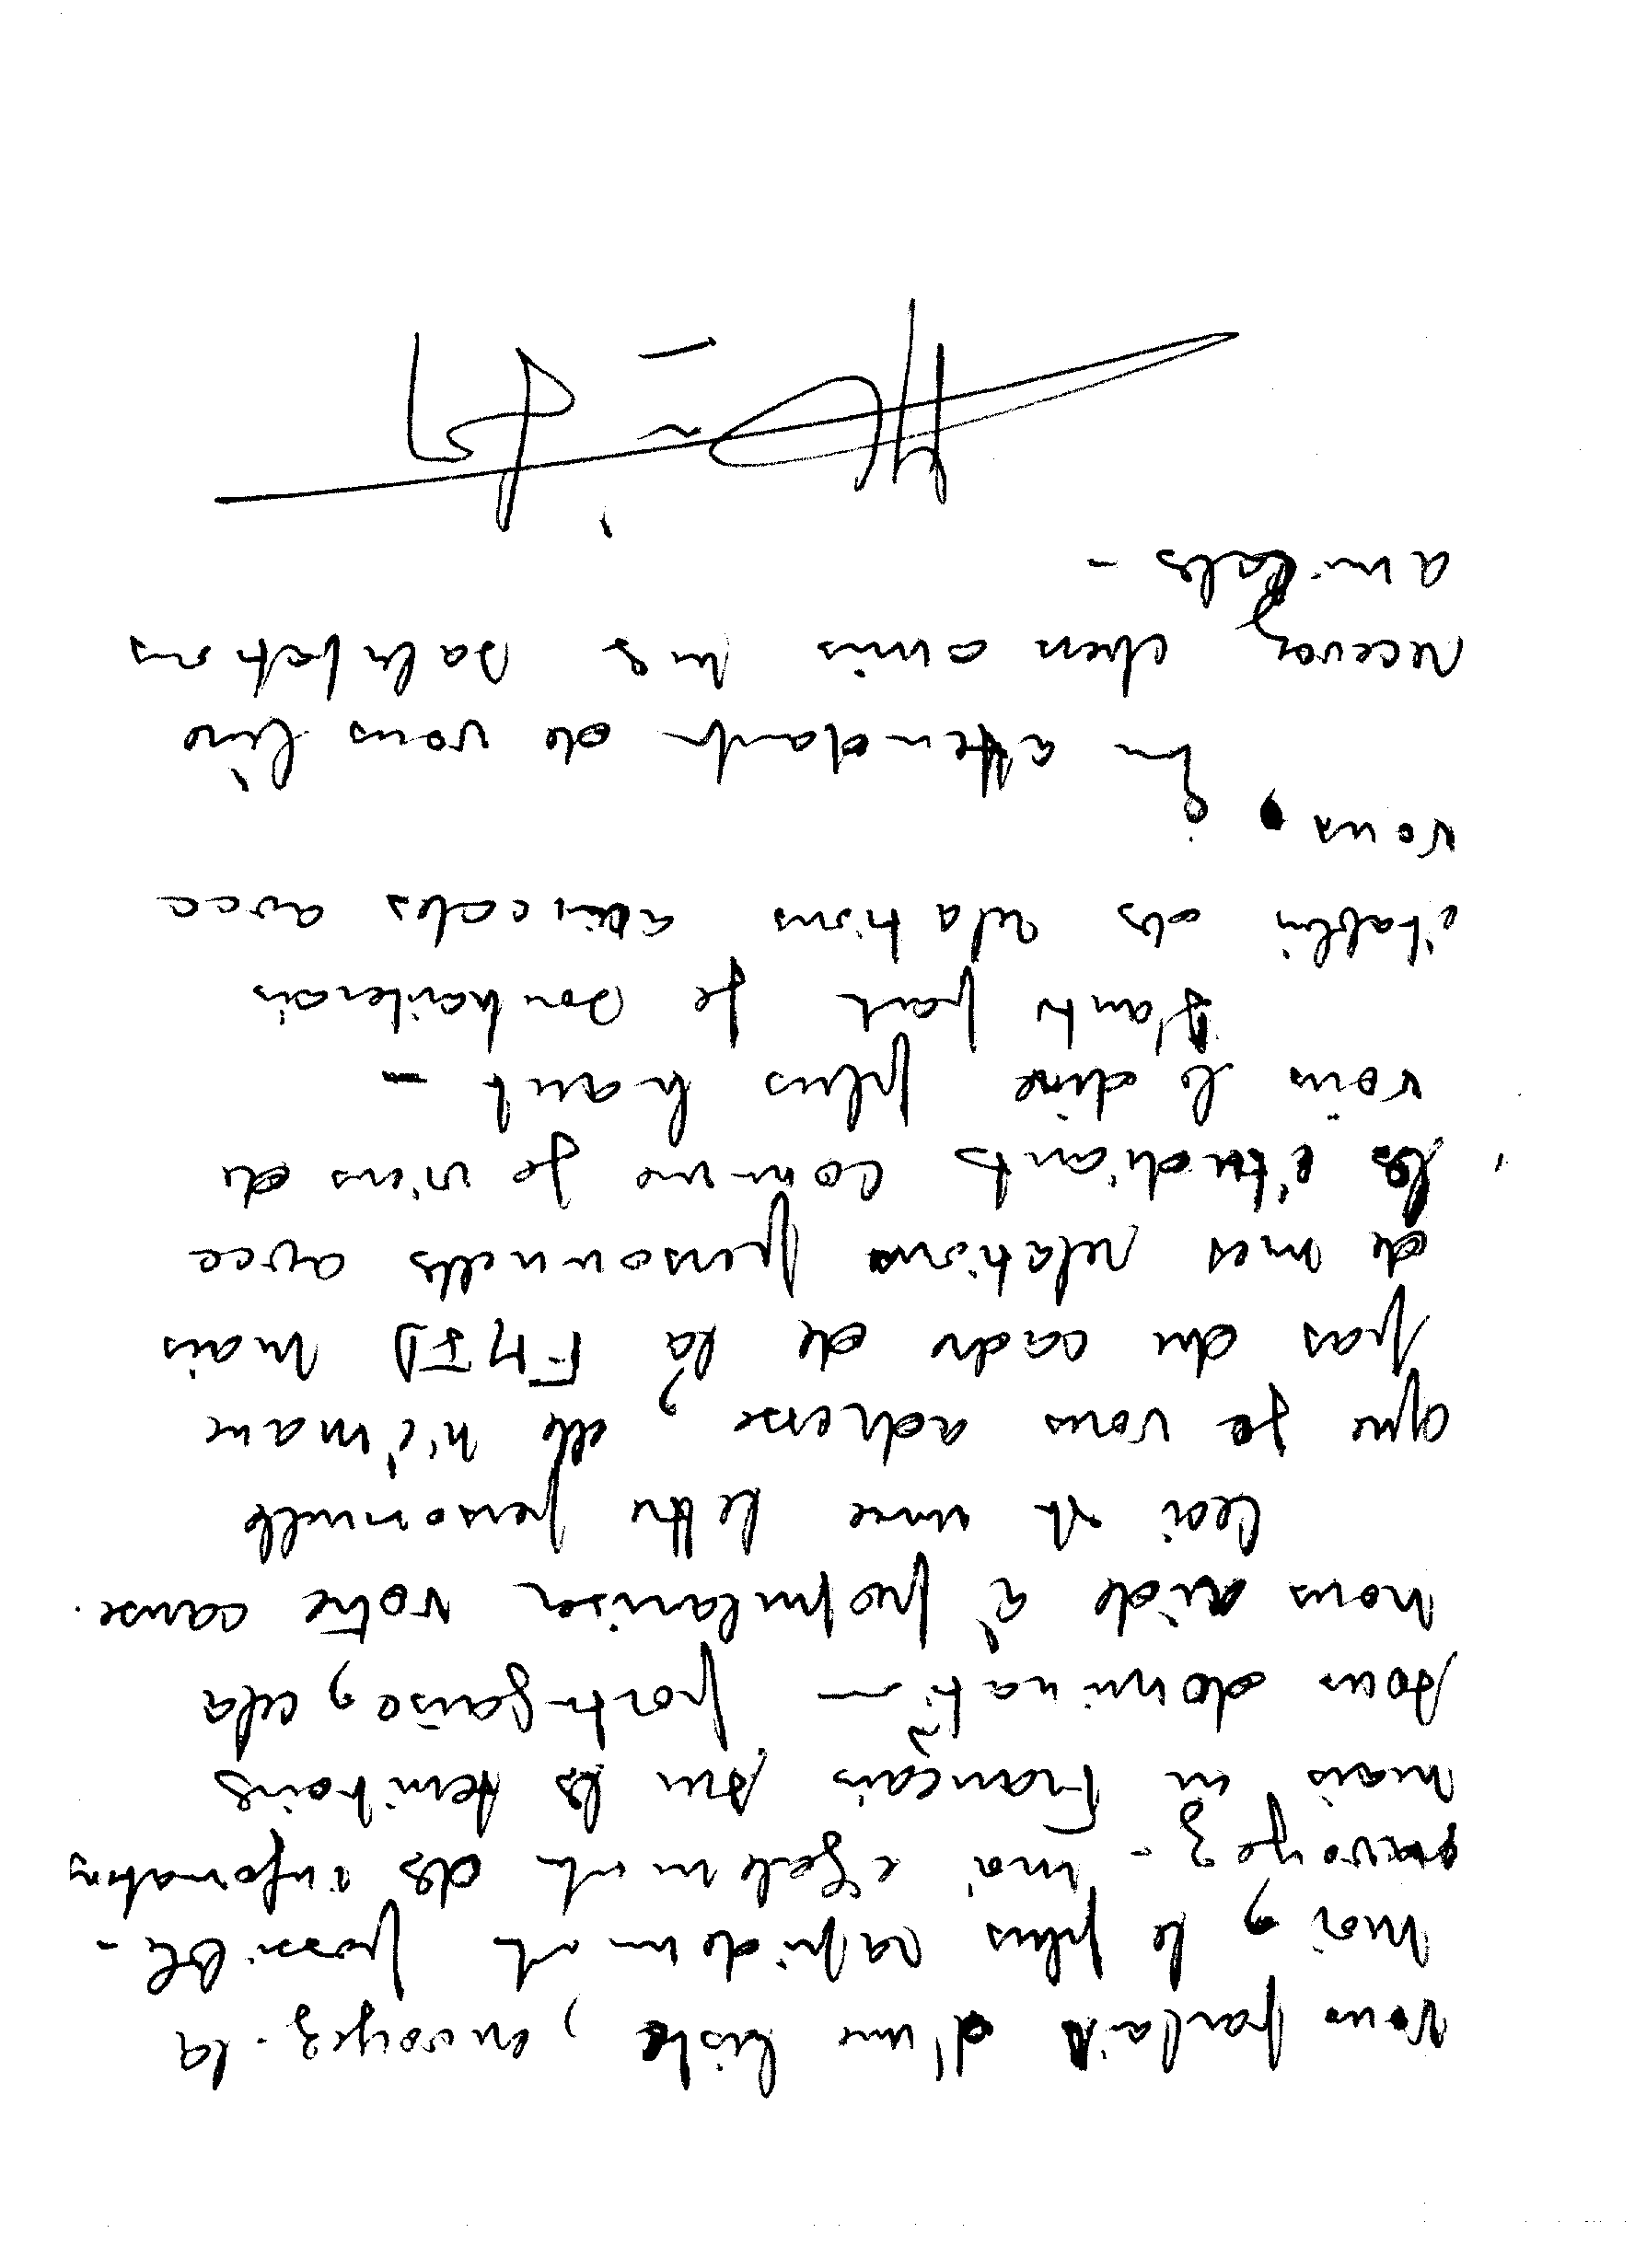 vous parlais d'une liste, envoyez-la
moi, le plus rapidement possible -
envoyez-moi également des informations
mais en Français sur les territoires
sous domination portugaise, cela
nous aide à populariser votre cause.
Ceci est une lettre personnelle
que je vous adresse, elle n'émane
pas du cadre de la FMJD mais
de mes relations personnelles avec
les étudiants comme je viens de
vous le dire plus haut -
D'autre part je souhaiterais
établir des relations amicales avec
vous.
En attendant de vous lire
recevez chers amis mes salutations
amicales -